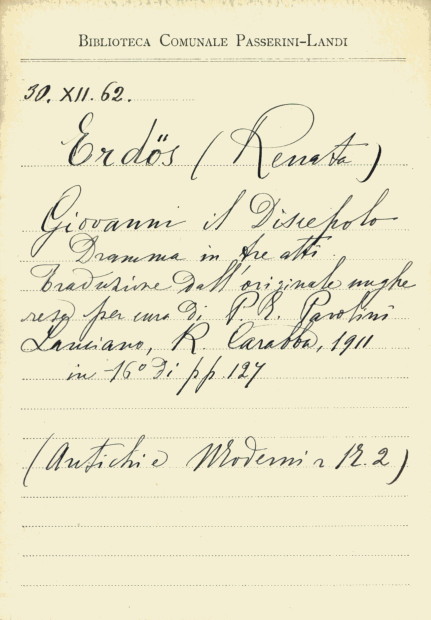 BIBLIOTECA COMUNALE PASSERINI-LANDI
30. XII. 62.
Erdős (Renata)
Giovanni il Discepolo
Dramma in tre atti.
Traduzione dall'originale unghe
rese per cura di P. E. Pavolini
Lanciano, R. Carabba, 1911
in -16° di pp. 127
(Antichi e Moderni n 2)